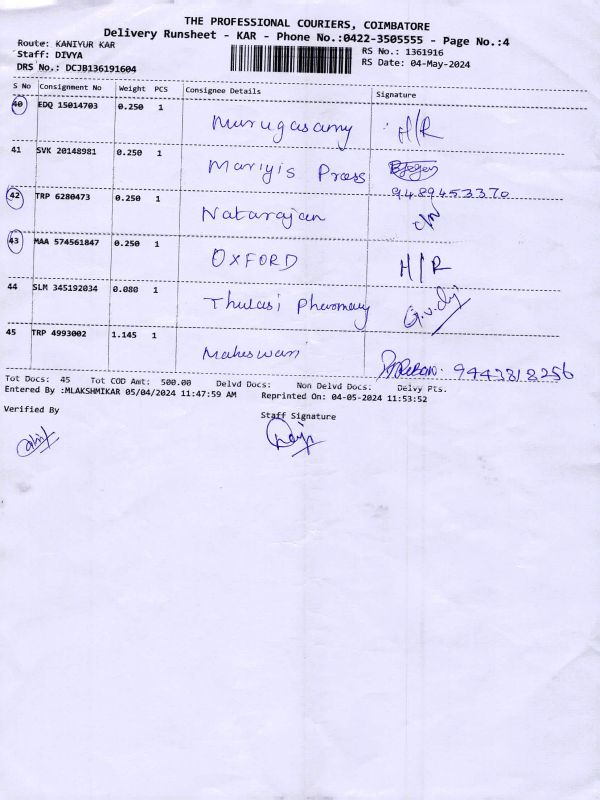 THE PROFESSIONAL COURIERS, COIMBATORE
Delivery Runsheet - KAR - Phone No.:0422-3505555 - Page No.:4
Route: KANIYUR KAR
RS No.: 1361916
Staff: DIVYA
RS Date: 04-May-2024
DRS No.: DCJB136191604
S No Consignment No Weight PCS Consignee Details Signature
40 EDQ 15014703 0.250 1 Murugasamy H/R
41 SVK 20148981 0.250 1 Mariyis Press
9489453370
42 TRP 6280473 0.250 1 Natarajan
43 MAA 574561847 0.250 1 OXFORD H/R
44 SLM 345192034 0.080 1 Thulasi Pharmacy
45 TRP 4993002 1.145 1 Maheswari 9443818256
Tot Docs: 45 Tot COD Amt: 500.00 Delvd Docs: Non Delvd Docs: Delvy Pts.
Entered By :MLAKSHMIKAR 05/04/2024 11:47:59 AM Reprinted On: 04-05-2024 11:53:52
Verified By
Staff Signature